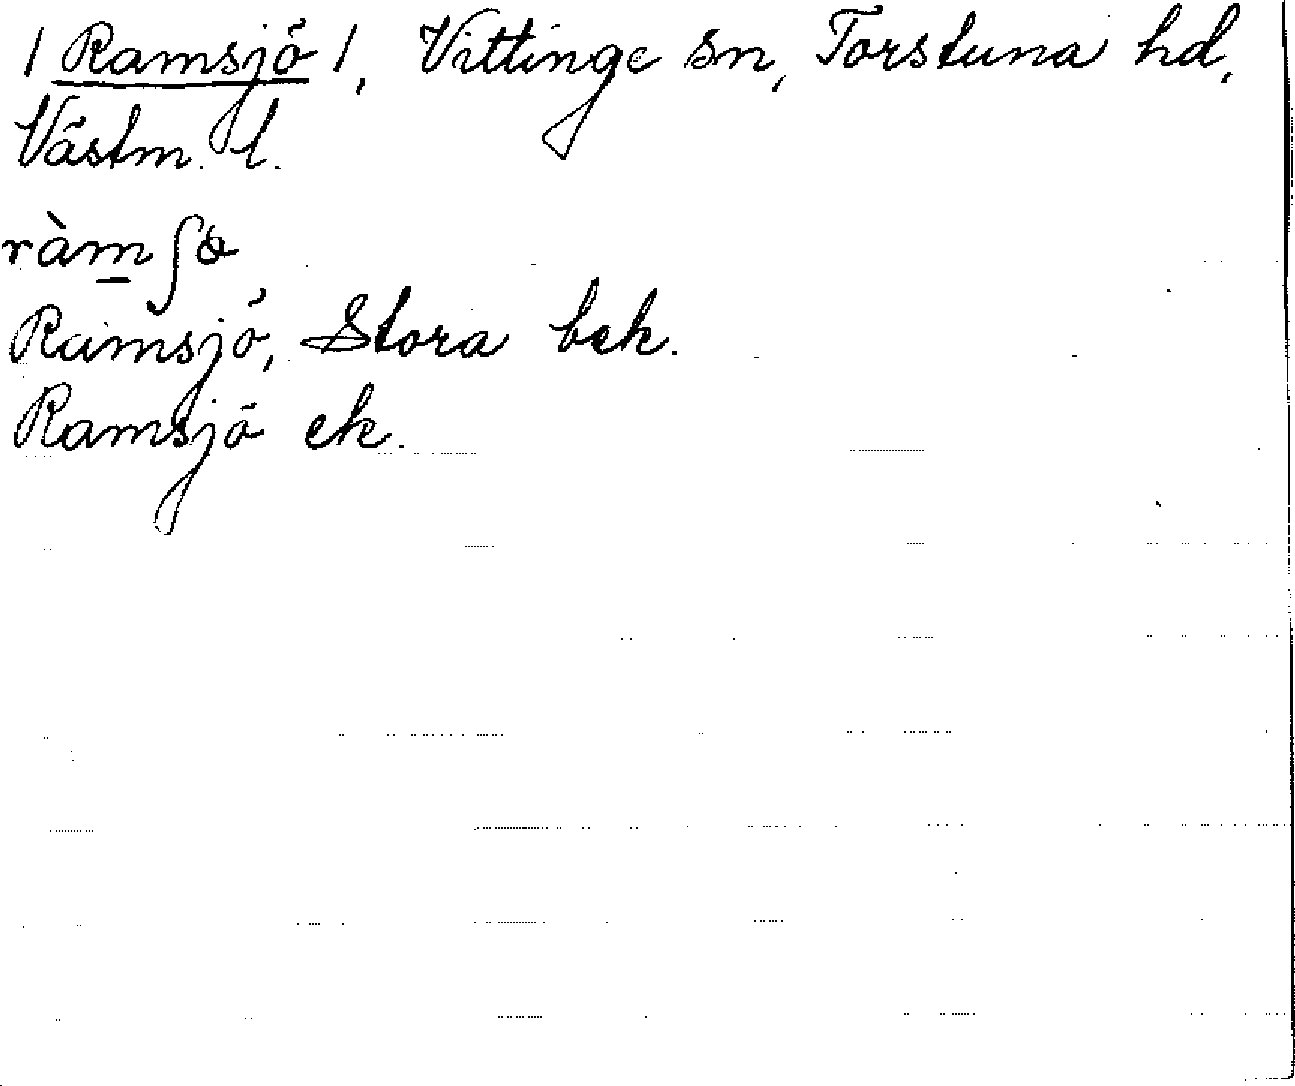 / Ramsjö /, Vittinge sn, Torstuna hd,
Västm. l.
ràmʃɷ
Ramsjö, Stora bek.
Ramsjö ek.